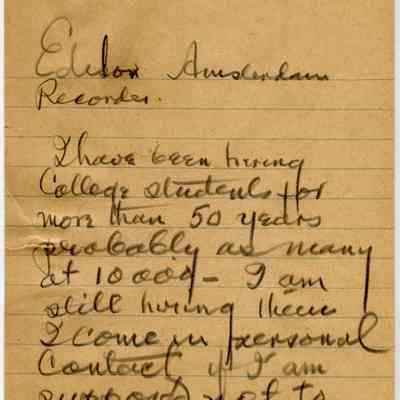 Editor Amsderdam
Recorder.
I have been hiring
College students for
more than 50 years
probably as many
at 10000 - I am
still hiring them
I come in personal
Contact if I am
suppos not to